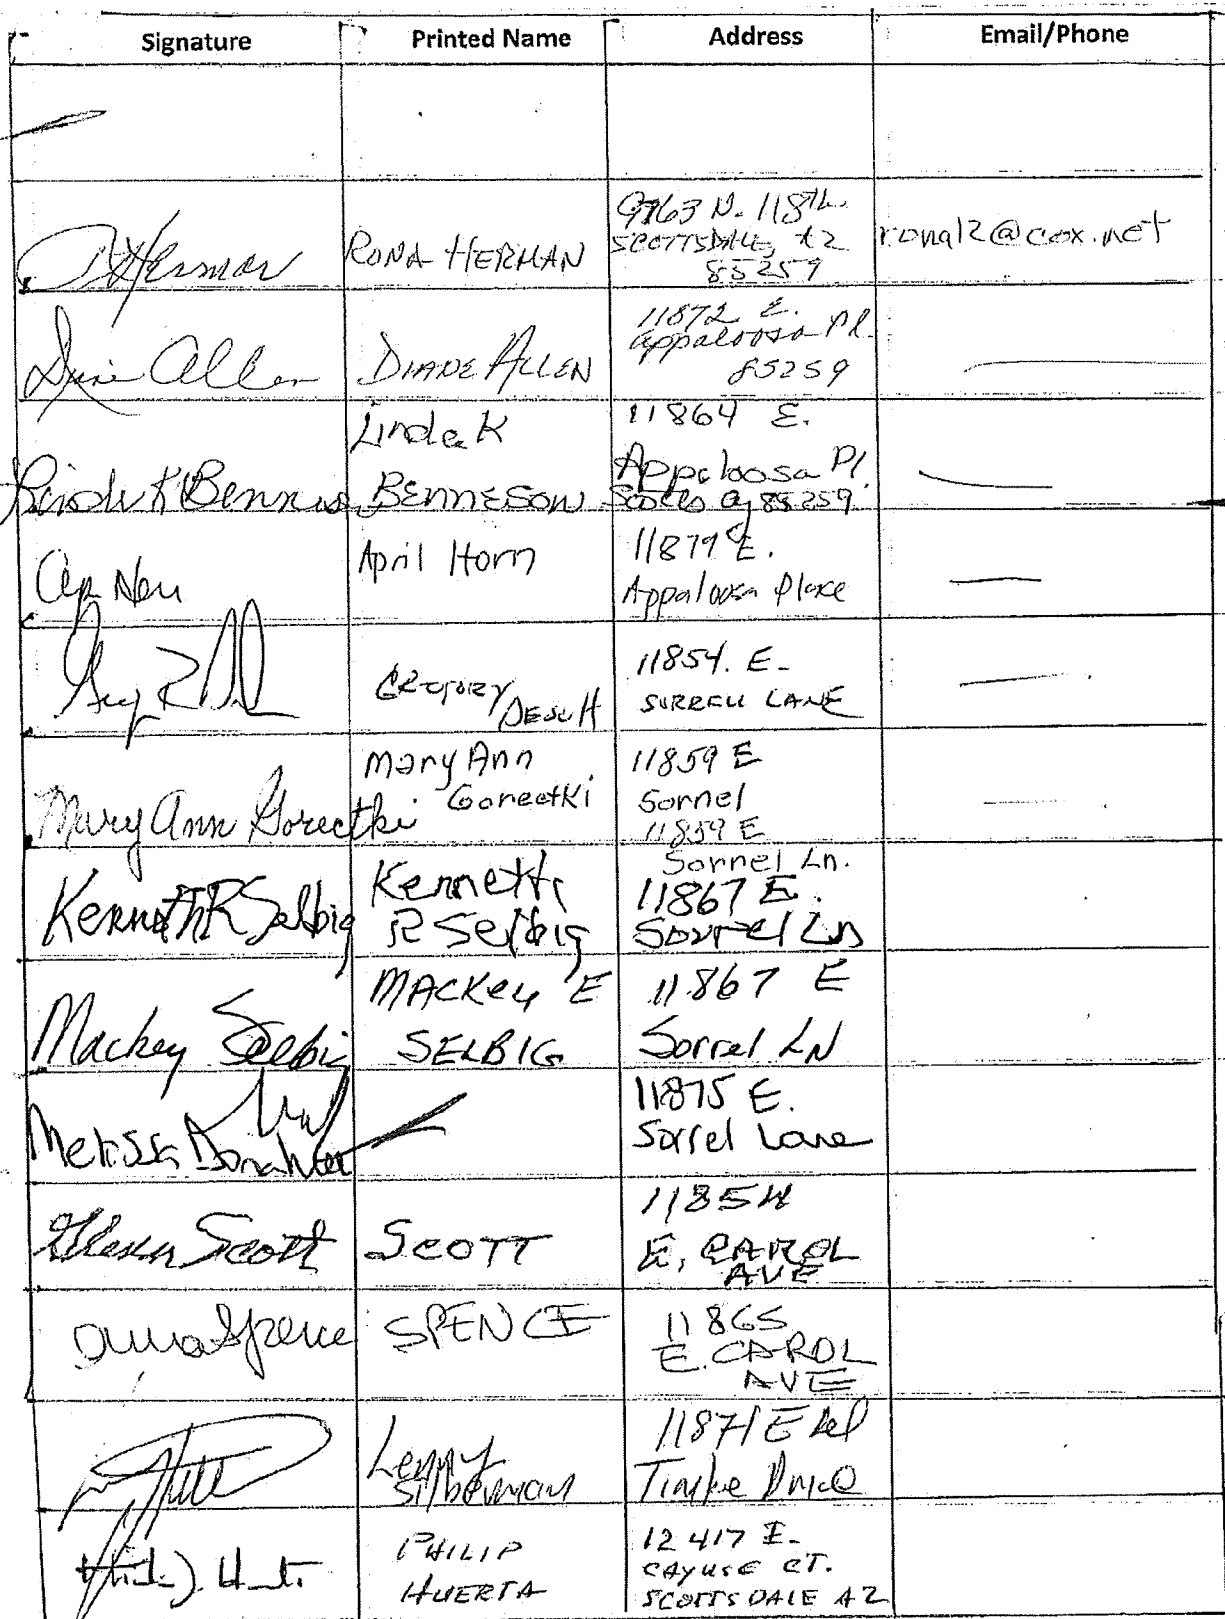 Signature Printed Name Address Email/Phone
RHerman RONA HERMAN 9763 N. 118th. SCOTTSDALE, AZ 85259 ronalz@cox.net
Diane Allen DIANE ALLEN 11872 E. Appaloosa Pl. 85259
Linda K Benneson Linda K BENNESON 11864 E. Appaloosa Pl. 85259
April Horn 11879 E. Appaloosa Place
GREGORY 11854. E. SORRELL LANE
Mary Ann Gorectki Mary Ann Gorectki 11859 E Sorrel 11859 E Sorrel Ln.
Kenneth R Selbig Kenneth R Selbig 11867 E. Sorrel Ln
Mackey Selbig MACKEY E SELBIG 11867 E Sorrel LN
Melissa Donahoe 11875 E. Sorrel Lane
Scott SCOTT 11854 E. CAROL AVE
Spence SPENCE 11865 E. CAROL AVE
Lenny Silberman 11871 E
PHILIP HUERTA 12417 E. CAYUSE CT. SCOTTSDALE AZ